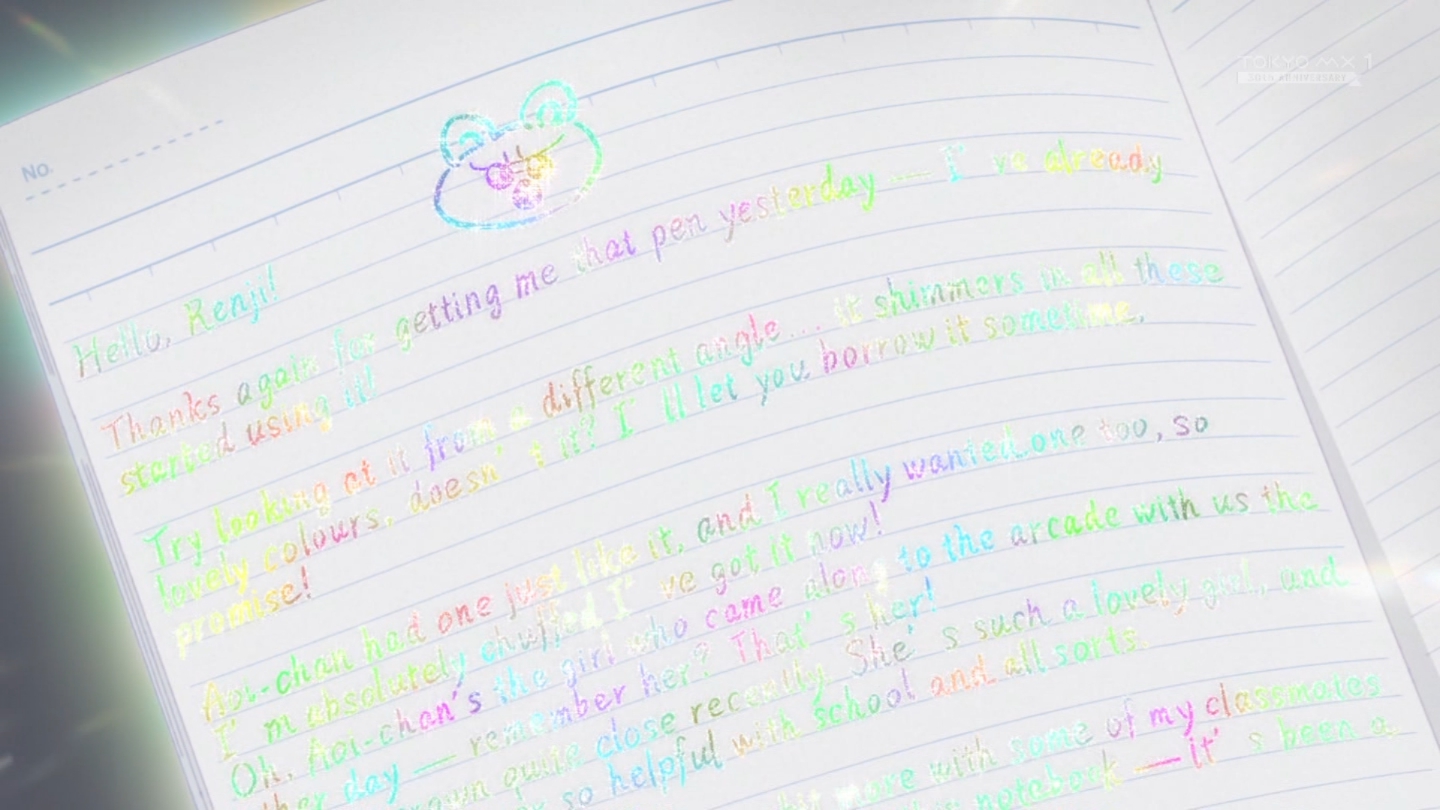 TOKYO MX 1
50TH ANNIVERSARY
No.
Hello, Renji!
Thanks again for getting me that pen yesterday — I've already
started using it!
Try looking at it from a different angle... it shimmers in all these
lovely colours, doesn't it? I'll let you borrow it sometime,
promise!
Aoi-chan had one just like it, and I really wanted one too, so
I'm absolutely chuffed I've got it now!
Oh, Aoi-chan's the girl who came along to the arcade with us the
ther day — remember her? That's her!
rown quite close recently. She's such a lovely girl, and
so helpful with school and all sorts.
bit more with some of my classmates
notebook — it's been a